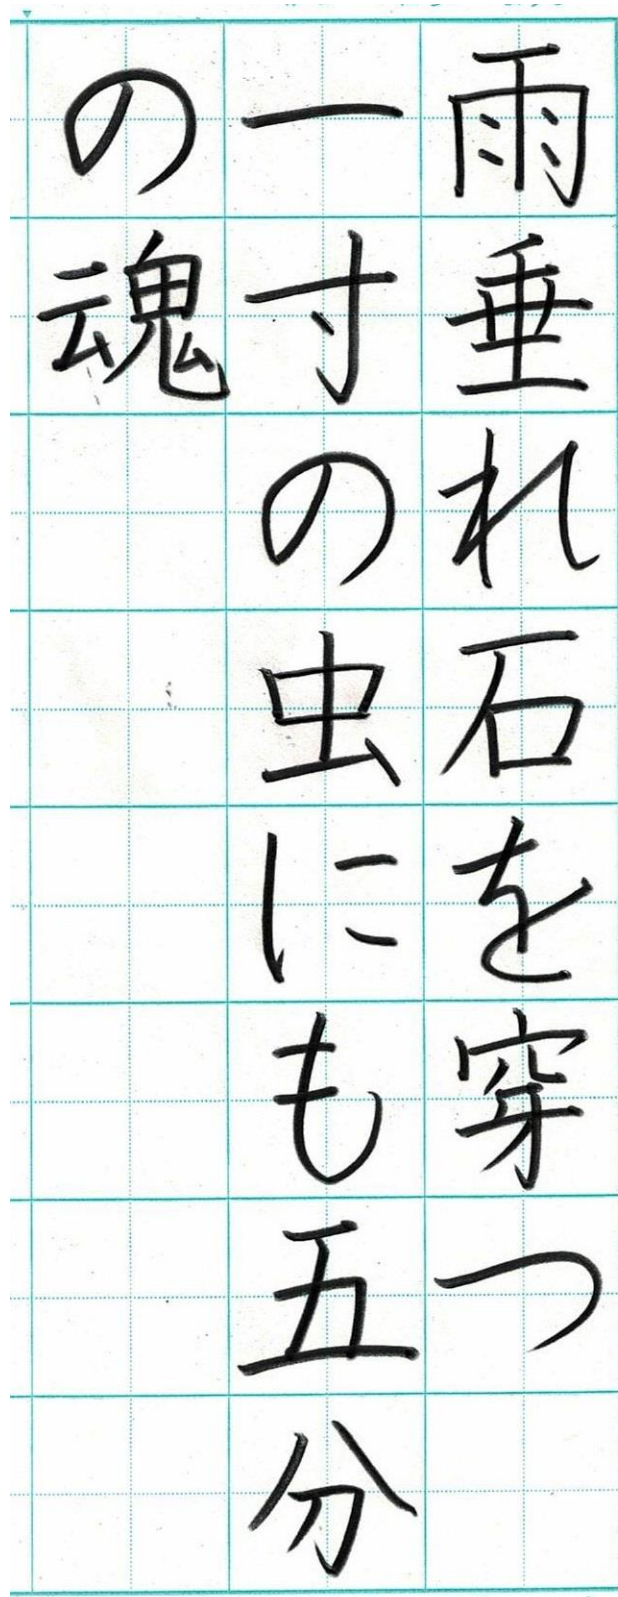 雨垂れ石を穿つ
一寸の虫にも五分
の魂